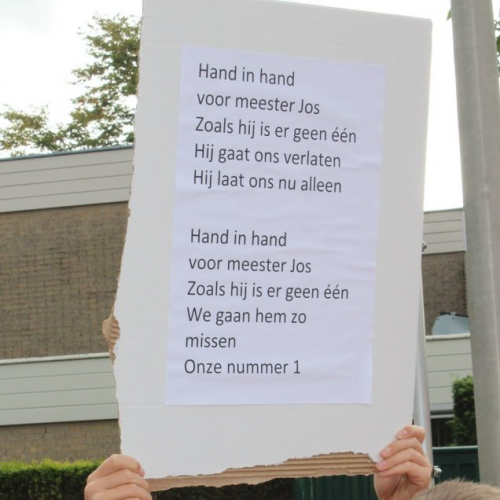 Hand in hand
voor meester Jos
Zoals hij is er geen één
Hij gaat ons verlaten
Hij laat ons nu alleen
Hand in hand
voor meester Jos
Zoals hij is er geen één
We gaan hem zo
missen
Onze nummer 1